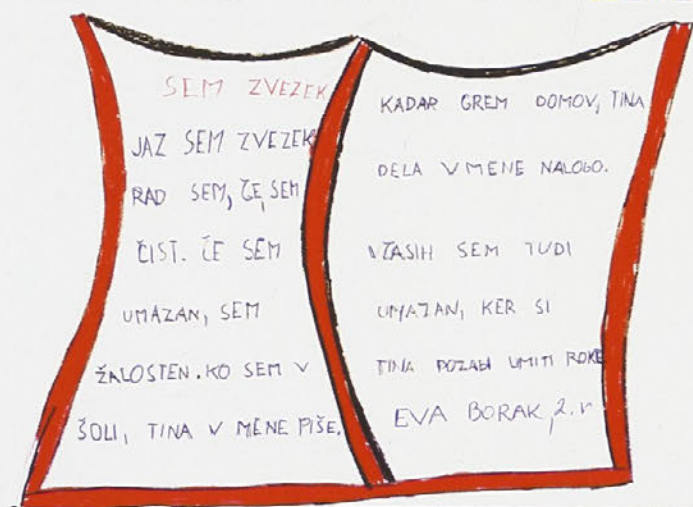 SEM ZVEZEK
JAZ SEM ZVEZEK
RAD SEM, ČE SEM
ČIST. ČE SEM
UMAZAN, SEM
ŽALOSTEN. KO SEM V
ŠOLI, TINA V MENE PIŠE.
KADAR GREM DOMOV, TINA
DELA V MENE NALOGO.
VČASIH SEM TUDI
UMAZAN, KER SI
TINA POZABI UMITI ROKE
EVA BORAK, 2. r